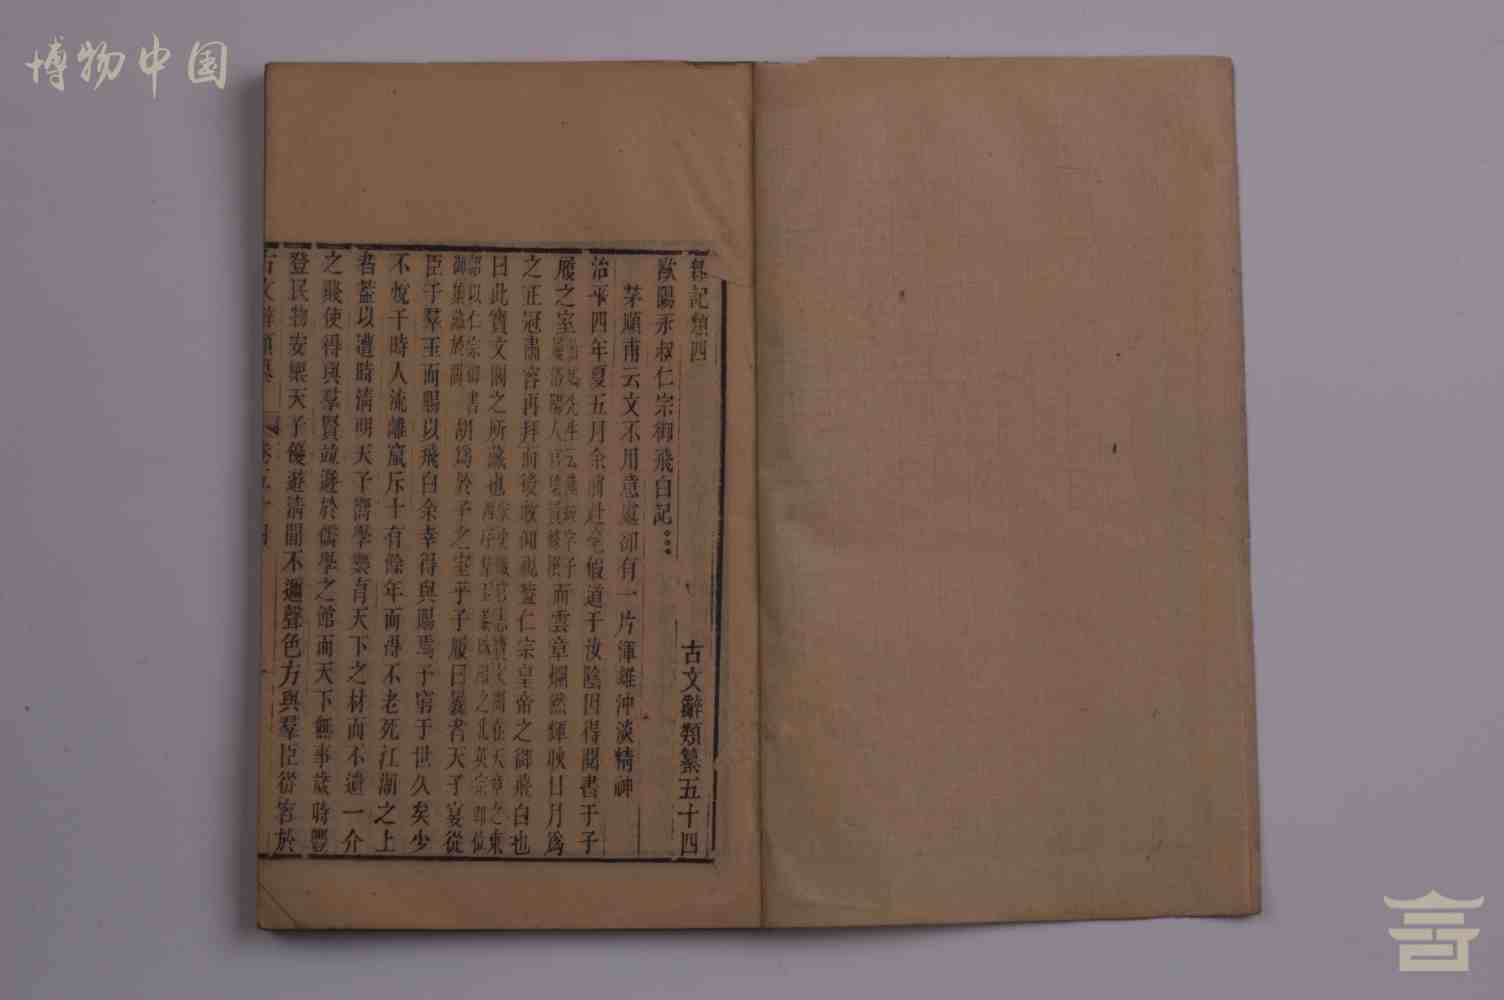 博物中国
雜記類四 古文辭類纂五十四
歐陽永叔仁宗御飛白記
茅順甫云文不用意處卻有一片渾雄沖淡精神
治平四年夏五月余將赴亳假道于汝陰因得閱書于子
履之室 而雲章爛然輝映日月爲
之正冠肅容再拜而後敢仰視蓋仁宗皇帝之御飛白也
曰此寶文閣之所藏也 在天章之東
胡爲於子之室乎子履曰曩者天子宴從
臣于羣玉而賜以飛白余幸得與賜焉予窮于世久矣少
不悅于時人流離竄斥十有餘年而得不老死江湖之上
者蓋以遭時清明天子嚮學樂育天下之材而不遺一介
之賤使得與羣賢並遊於儒學之館而天下無事歲時豐
登民物安樂天子優遊清閒不邇聲色方與羣臣從容於
古文辭類纂 卷五十四 一